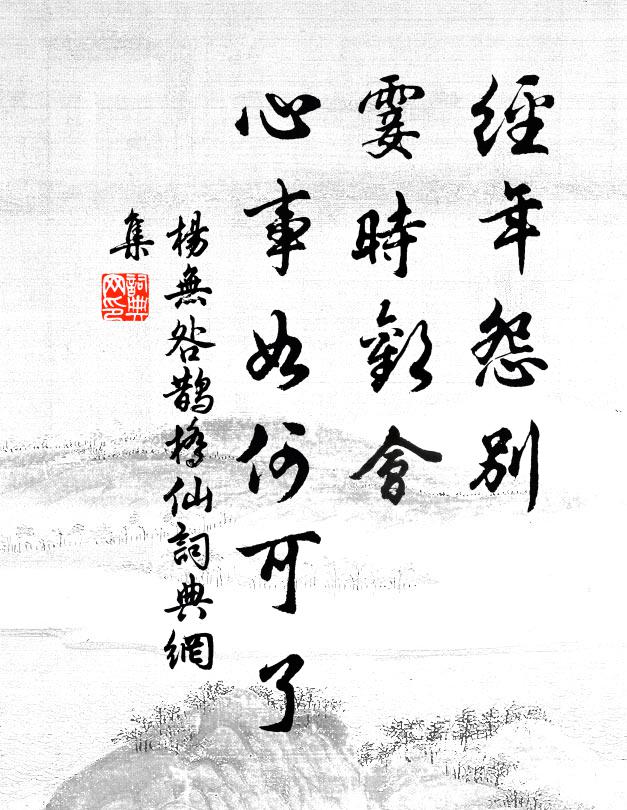 經年怨別
霎時歡會
心事如何可了
楊無咎鵲橋仙詞典網
集
詞典
网印